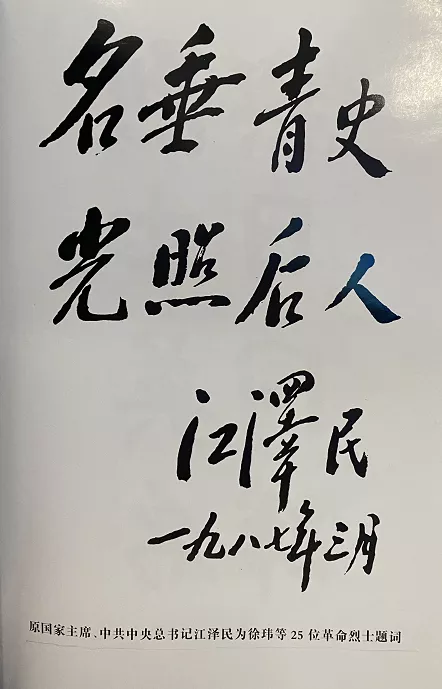 名垂青史
光照后人
江澤民
一九八七年三月
原国家主席、中共中央总书记江泽民为徐玮等25位革命烈士题词